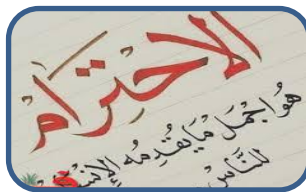 الاحترام
هُوَ أجْمَل مَا يُقدِمُه الإنسان
للنَّاسْ